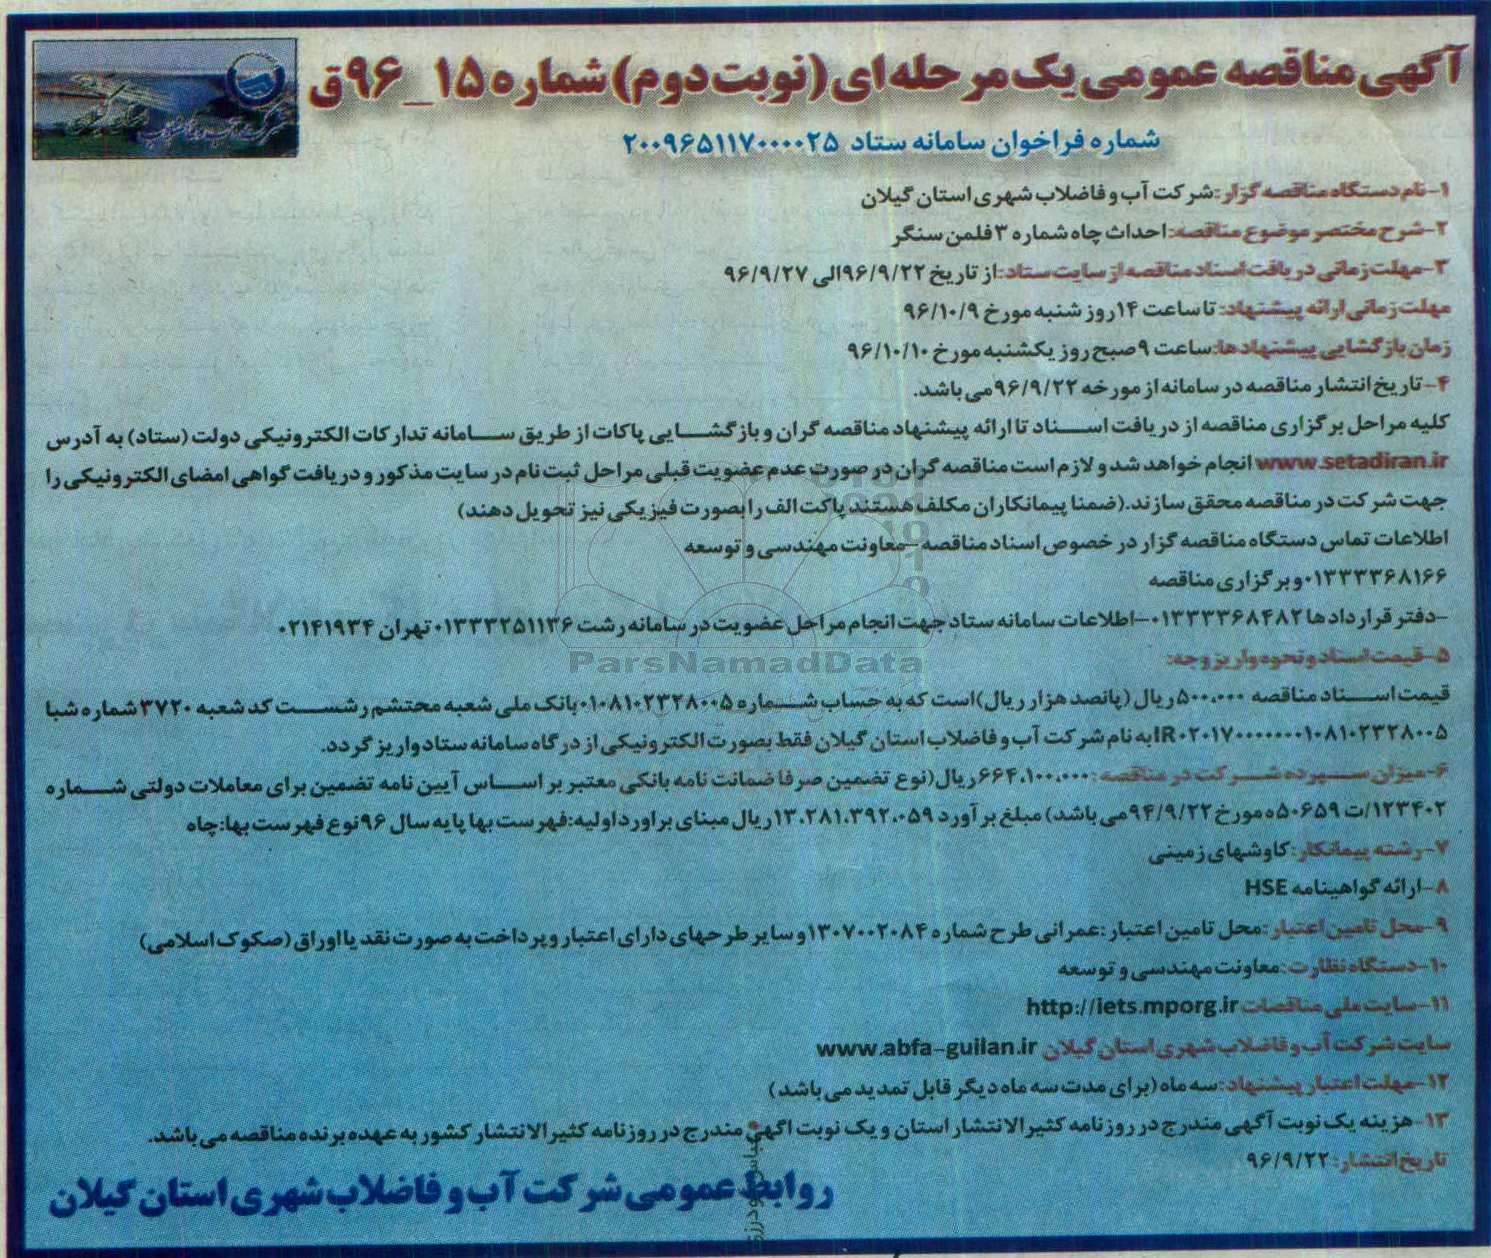 آگهی مناقصه عمومی یک مرحله ای (نوبت دوم) شماره ۱۵_۹۶ق
شماره فراخوان سامانه ستاد ۲۰۰۹۶۵۱۱۷۰۰۰۰۲۵
۱-نام دستگاه مناقصه گزار: شرکت آب و فاضلاب شهری استان گیلان
۲-شرح مختصر موضوع مناقصه: احداث چاه شماره ۳ فلمن سنگر
۳-مهلت زمانی دریافت اسناد مناقصه از سایت ستاد: از تاریخ ۹۶/۹/۲۲ الی ۹۶/۹/۲۷
مهلت زمانی ارائه پیشنهاد: تا ساعت ۱۴ روز شنبه مورخ ۹۶/۱۰/۹
زمان بازگشایی پیشنهادها: ساعت ۹ صبح روز یکشنبه مورخ ۹۶/۱۰/۱۰
۴-تاریخ انتشار مناقصه در سامانه از مورخه ۹۶/۹/۲۲ می باشد.
کلیه مراحل برگزاری مناقصه از دریافت اسناد تا ارائه پیشنهاد مناقصه گران و بازگشایی پاکات از طریق سامانه تدارکات الکترونیکی دولت (ستاد) به آدرس
www.setadiran.ir انجام خواهد شد و لازم است مناقصه گران در صورت عدم عضویت قبلی مراحل ثبت نام در سایت مذکور و دریافت گواهی امضای الکترونیکی را
جهت شرکت در مناقصه محقق سازند.(ضمنا پیمانکاران مکلف هستند پاکت الف را بصورت فیزیکی نیز تحویل دهند)
اطلاعات تماس دستگاه مناقصه گزار در خصوص اسناد مناقصه -معاونت مهندسی و توسعه
۰۱۳۳۳۳۶۸۱۶۶ و برگزاری مناقصه
-دفتر قراردادها ۰۱۳۳۳۳۶۸۴۸۲-اطلاعات سامانه ستاد جهت انجام مراحل عضویت در سامانه رشت ۰۱۳۳۳۲۵۱۱۳۶ تهران ۰۲۱۴۱۹۳۴
ParsNamadData
۵-قیمت اسناد و نحوه واریز وجه:
قیمت اسناد مناقصه ۵۰۰،۰۰۰ ریال (پانصد هزار ریال) است که به حساب شماره ۰۱۰۸۱۰۲۳۲۸۰۰۵ بانک ملی شعبه محتشم رشت کد شعبه ۳۷۲۰ شماره شبا
IR۰۲۰۱۷۰۰۰۰۰۰۰۱۰۸۱۰۲۳۲۸۰۰۵ به نام شرکت آب و فاضلاب استان گیلان فقط بصورت الکترونیکی از درگاه سامانه ستاد واریز گردد.
۶-میزان سپرده شرکت در مناقصه: ۶۶۴،۱۰۰،۰۰۰ ریال (نوع تضمین صرفا ضمانت نامه بانکی معتبر بر اساس آیین نامه تضمین برای معاملات دولتی شماره
۱۲۳۴۰۲/ت ۵۰۶۵۹ه مورخ ۹۴/۹/۲۲ می باشد) مبلغ برآورد ۱۳،۲۸۱،۳۹۲،۰۵۹ ریال مبنای براورد اولیه: فهرست بها پایه سال ۹۶ نوع فهرست بها: چاه
۷-رشته پیمانکار: کاوشهای زمینی
۸-ارائه گواهینامه HSE
۹-محل تامین اعتبار: محل تامین اعتبار: عمرانی طرح شماره ۱۳۰۷۰۰۲۰۸۴ و سایر طرحهای دارای اعتبار و پرداخت به صورت نقد یا اوراق (صکوک اسلامی)
۱۰-دستگاه نظارت: معاونت مهندسی و توسعه
۱۱-سایت ملی مناقصات http://iets.mporg.ir
سایت شرکت آب و فاضلاب شهری استان گیلان www.abfa-guilan.ir
۱۲-مهلت اعتبار پیشنهاد: سه ماه (برای مدت سه ماه دیگر قابل تمدید می باشد)
۱۳-هزینه یک نوبت آگهی مندرج در روزنامه کثیرالانتشار استان و یک نوبت اگهی مندرج در روزنامه کثیرالانتشار کشور به عهده برنده مناقصه می باشد.
تاریخ انتشار: ۹۶/۹/۲۲
روابط عمومی شرکت آب و فاضلاب شهری استان گیلان